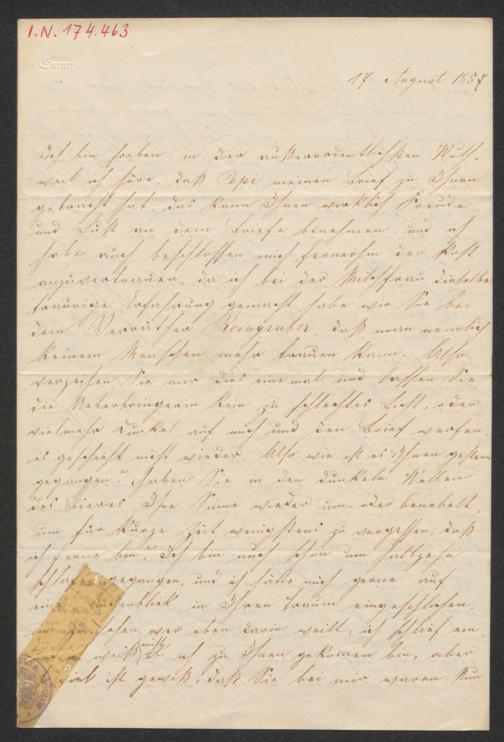 I.N. 174.463
Emmy
17. August 1857
Ich bin soeben in der außerordentlichsten Wuth,
weil ich höre, daß Pepi meinen Brief zu Ihnen
gebracht hat, das kann Ihnen wirklich Freude
und Lust an dem Briefe benehmen, und ich
habe auch beschlossen mich fernerhin der Post
anzuvertrauen, da ich bei der Milchfrau dieselbe
traurige Erfahrung gemacht habe wie Sie bei
dem Verräther Reingruber, daß man nemlich
keinem Menschen mehr trauen kann. Also
verzeihen Sie mir dies eine mal und lassen Sie
die Ueberbringerin kein zu schlechtes Licht, oder
vielmehr Dunkel auf mich und den Brief werfen,
es geschieht nicht wieder. Also wie ist es Ihnen gestern
gegangen? Haben Sie in den dunkeln Wellen
des Bieres Ihre Sinne wieder um oder benebelt,
um für kurze Zeit wenigstens zu vergessen, daß
ich ferne bin? Ich bin auch schon um halbzehn
schlafen gegangen, und ich hätte mich gerne auf
einen Augenblick in Ihren Traum eingeschlichen,
um sehen wer eben darin weilt, ich schlief ein,
weiß nicht ob ich zu Ihnen gekomen bin, aber
ist gewiß, daß Sie bei mir waren. Nun